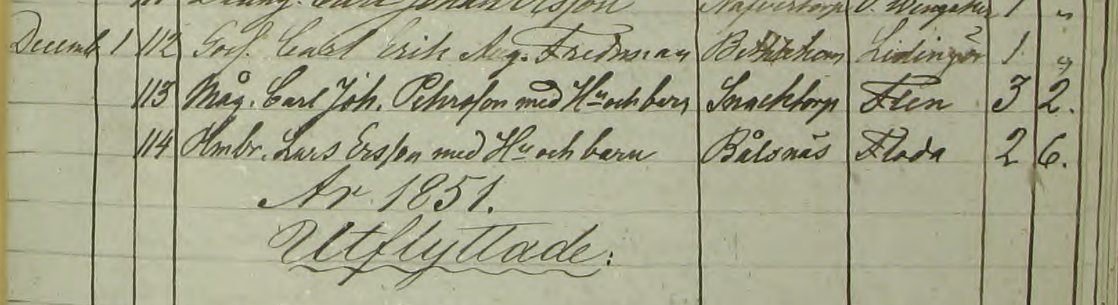 Carl Johan Ersson V. Wingåker 1 "
Decemb. 1 112 Carl Erik Aug. Fredman Lidingö 1 "
113 Måg. Carl Joh. Pehrsson med Hu och barn Flen 3 2.
114 Hmbr. Lars Ersson med Hu och barn Bålsnäs Floda 2 6.
År 1851.
Utflyttade: